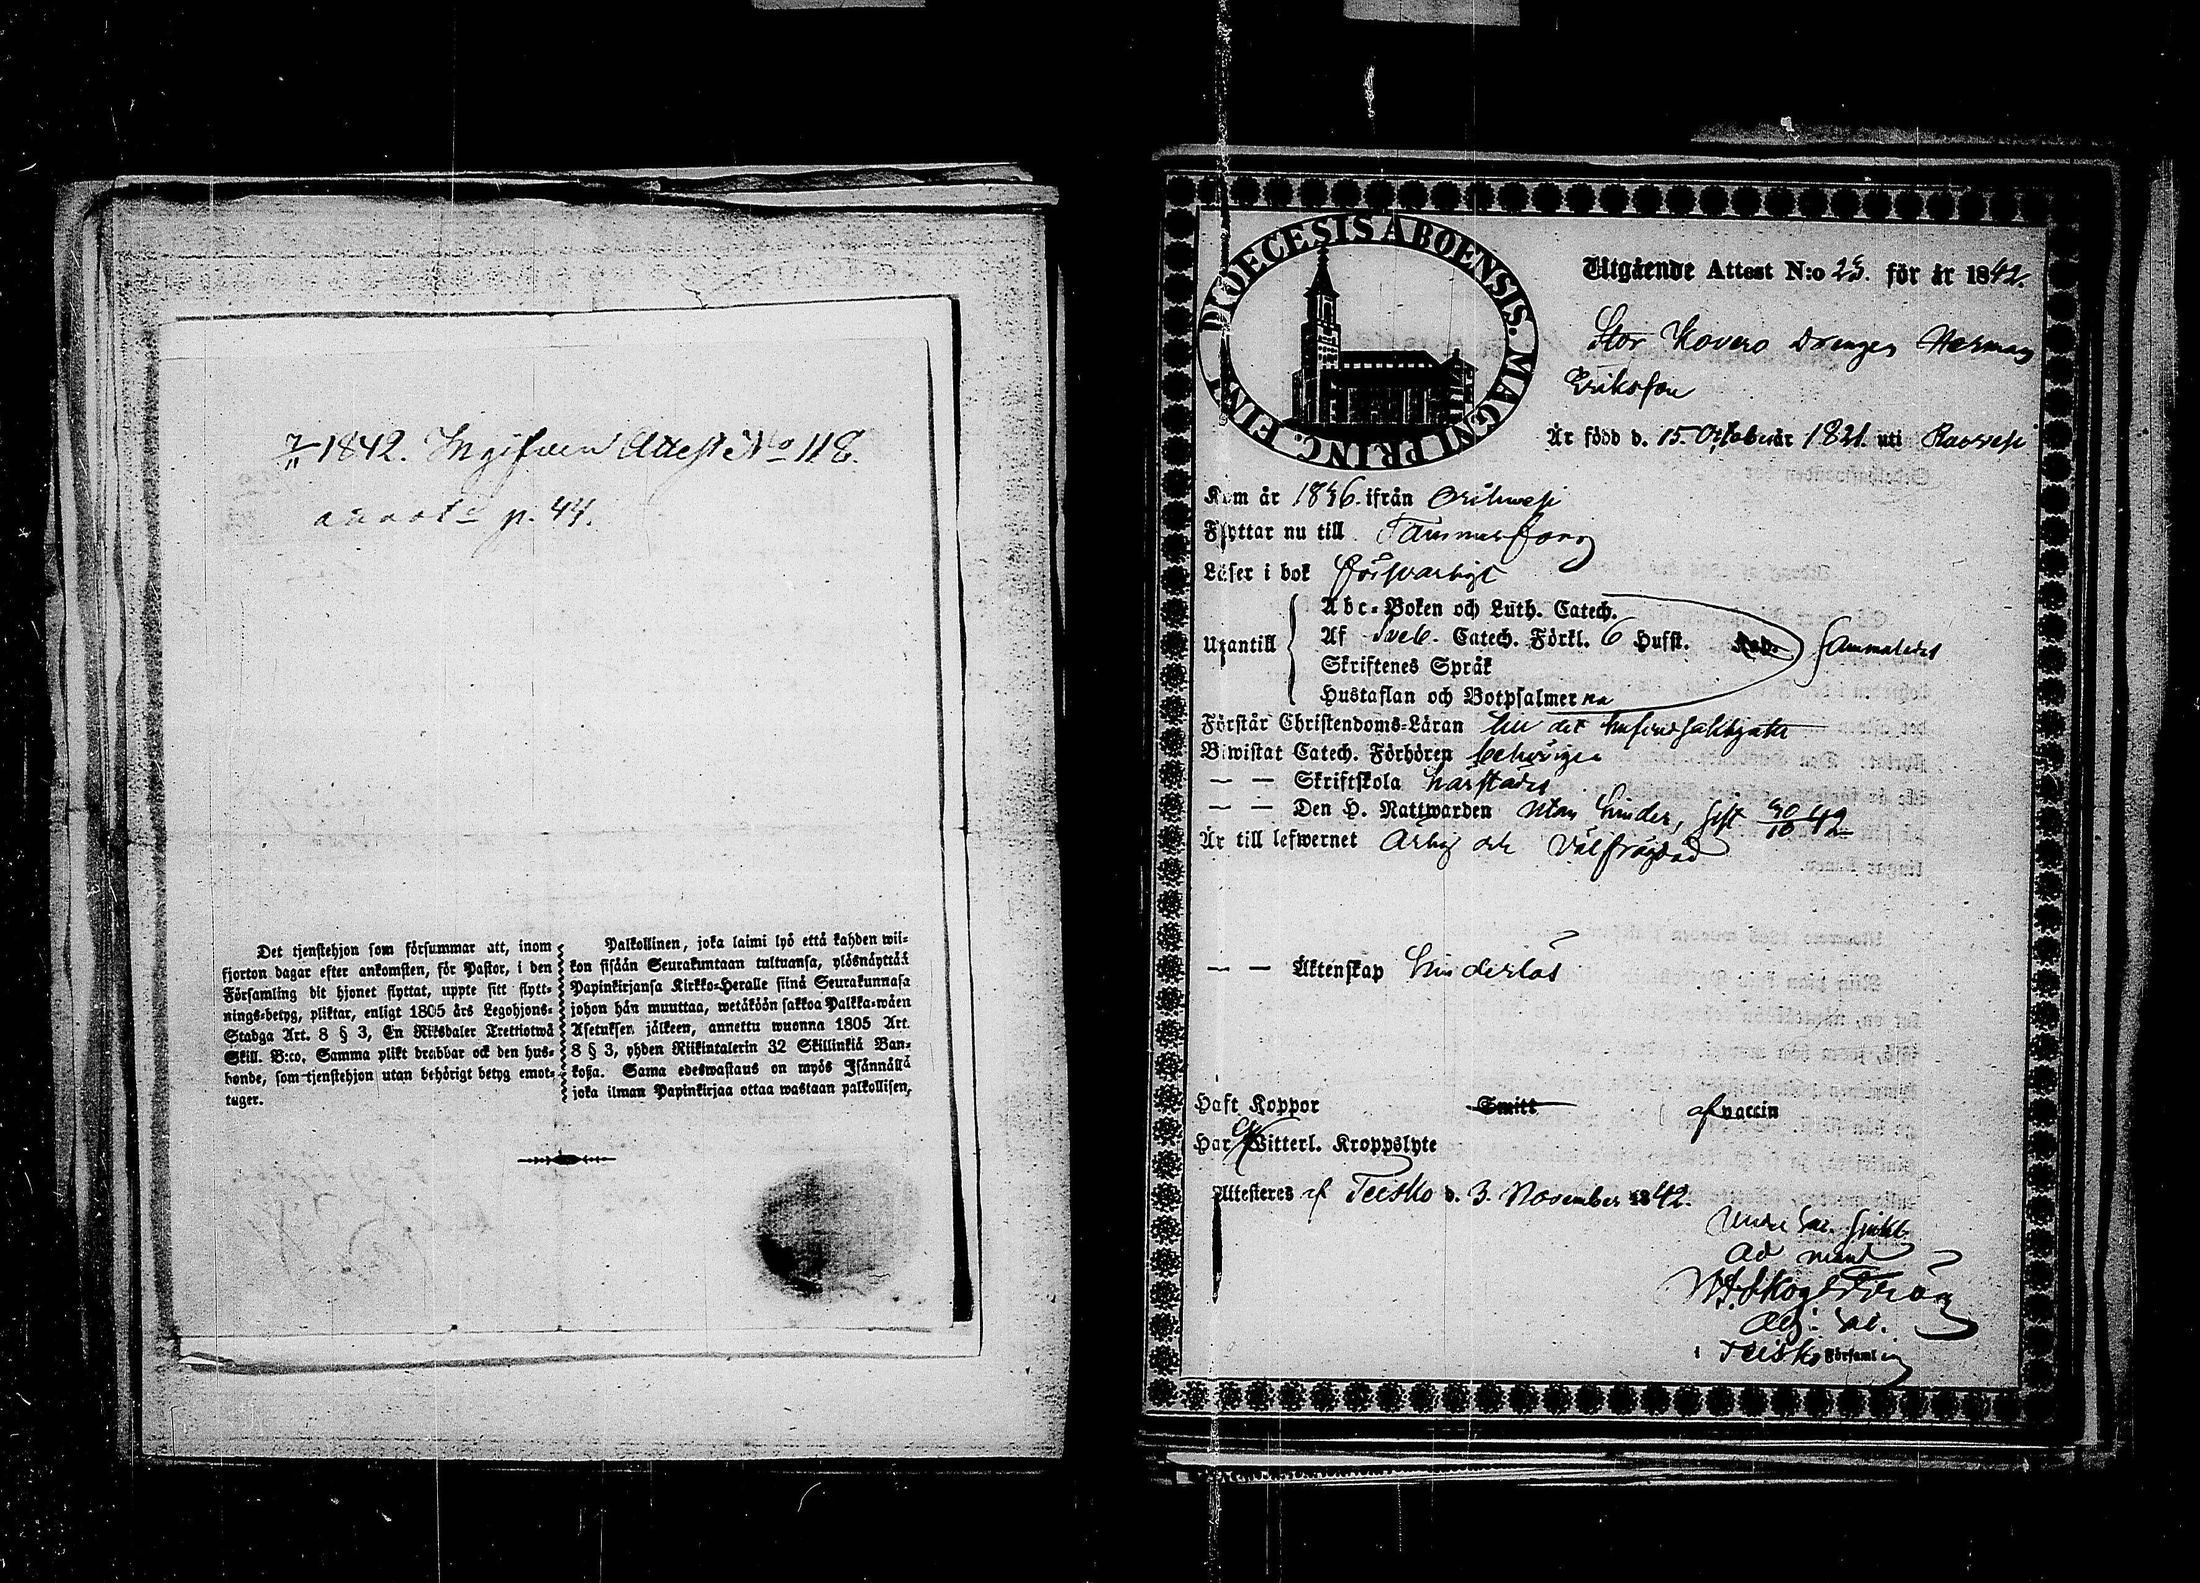 7/11 1842. Ingifven Attest No 118.
annot. p. 44.
Det tjenstehjon som försummar att, inom
fjorton dagar efter ankomsten, för Pastor, i den
Församling dit hjonet flyttat, uppte sitt flytt-
nings-betyg, pliktar, enligt 1805 års Legohjons-
Stadga Art. 8 § 3, En Riksdaler Trettiotwå
Skill. B:co. Samma plikt drabbar ock den hus-
bonde, som tjenstehjon utan behörigt betyg emot-
tager.
Palkollinen, joka laimi lyö että kahden wii-
kon sisään Seurakuntaan tultuansa, ylösnäyttää
Papinkirjansa Kirkko-Heralle siinä Seurakunnasa
johon hän muuttaa, wetäköön sakkoa Palkka-wäen
Asetuksen jälkeen, annettu wuonna 1805 Art.
8 § 3, yhden Riikintalerin 32 Skillinkiä Ban-
kosa. Sama edeswastaus on myös Isännällä
joka ilman Papinkirjaa ottaa wastaan palkollisen,
DIOECESIS ABOENSIS. MAGNI PRINC. FINL.
Utgående Attest N:o 23. för år 1842.
Stor Kovero Drengen Herman
Eriksson
Är född d. 15. October 1821. uti Ruovesi
Kom år 1836. ifrån Orihvesi
Flyttar nu till Tammerfors
Läser i bok försvarligt
Abc-Boken och Luth. Catech.
Utantill Af Sveb. Catech. Förkl. 6 Hufst. Sammaledes
Skriftenes Språk
Hustaflan och Botpsalmerna
Förstår Christendoms-Läran till det
Biwistat Catech. Förhören behörigen
— — Skriftskola
— — Den H. Nattwarden utan hinder, sist 30/10 42
Är till lefwernet Ärlig och Välfrägdad
— — Äktenskap hinderlös
Haft Koppor Smitt af vaccin
Har Ej Witterl. Kroppslyte
Attesteres af Teisko d. 3. November 1842.
Ad mand
Adj. Sac.
i Teisko Församling